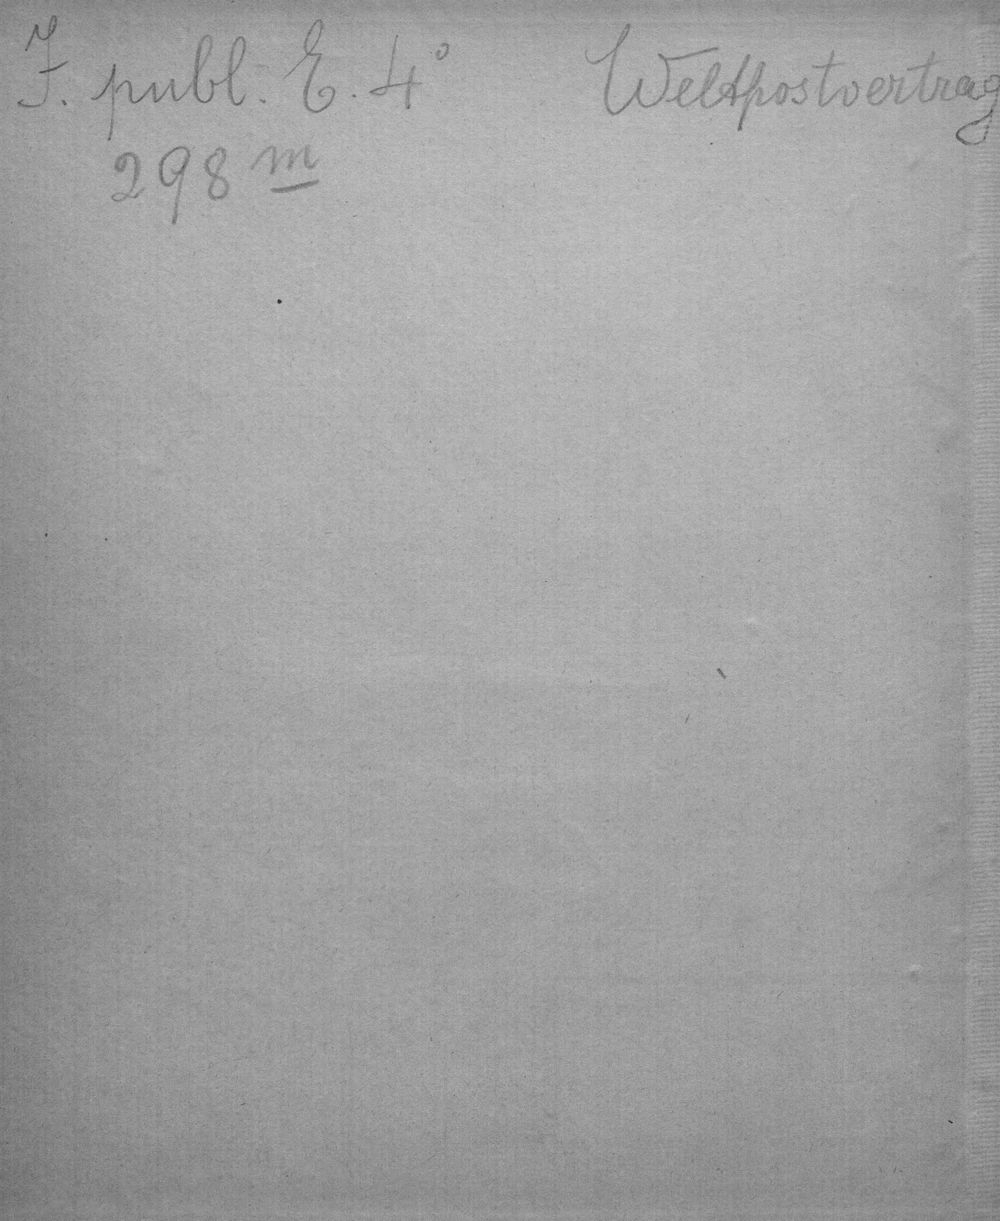 J. publ. E. 4° Weltpostvertrag
298 m